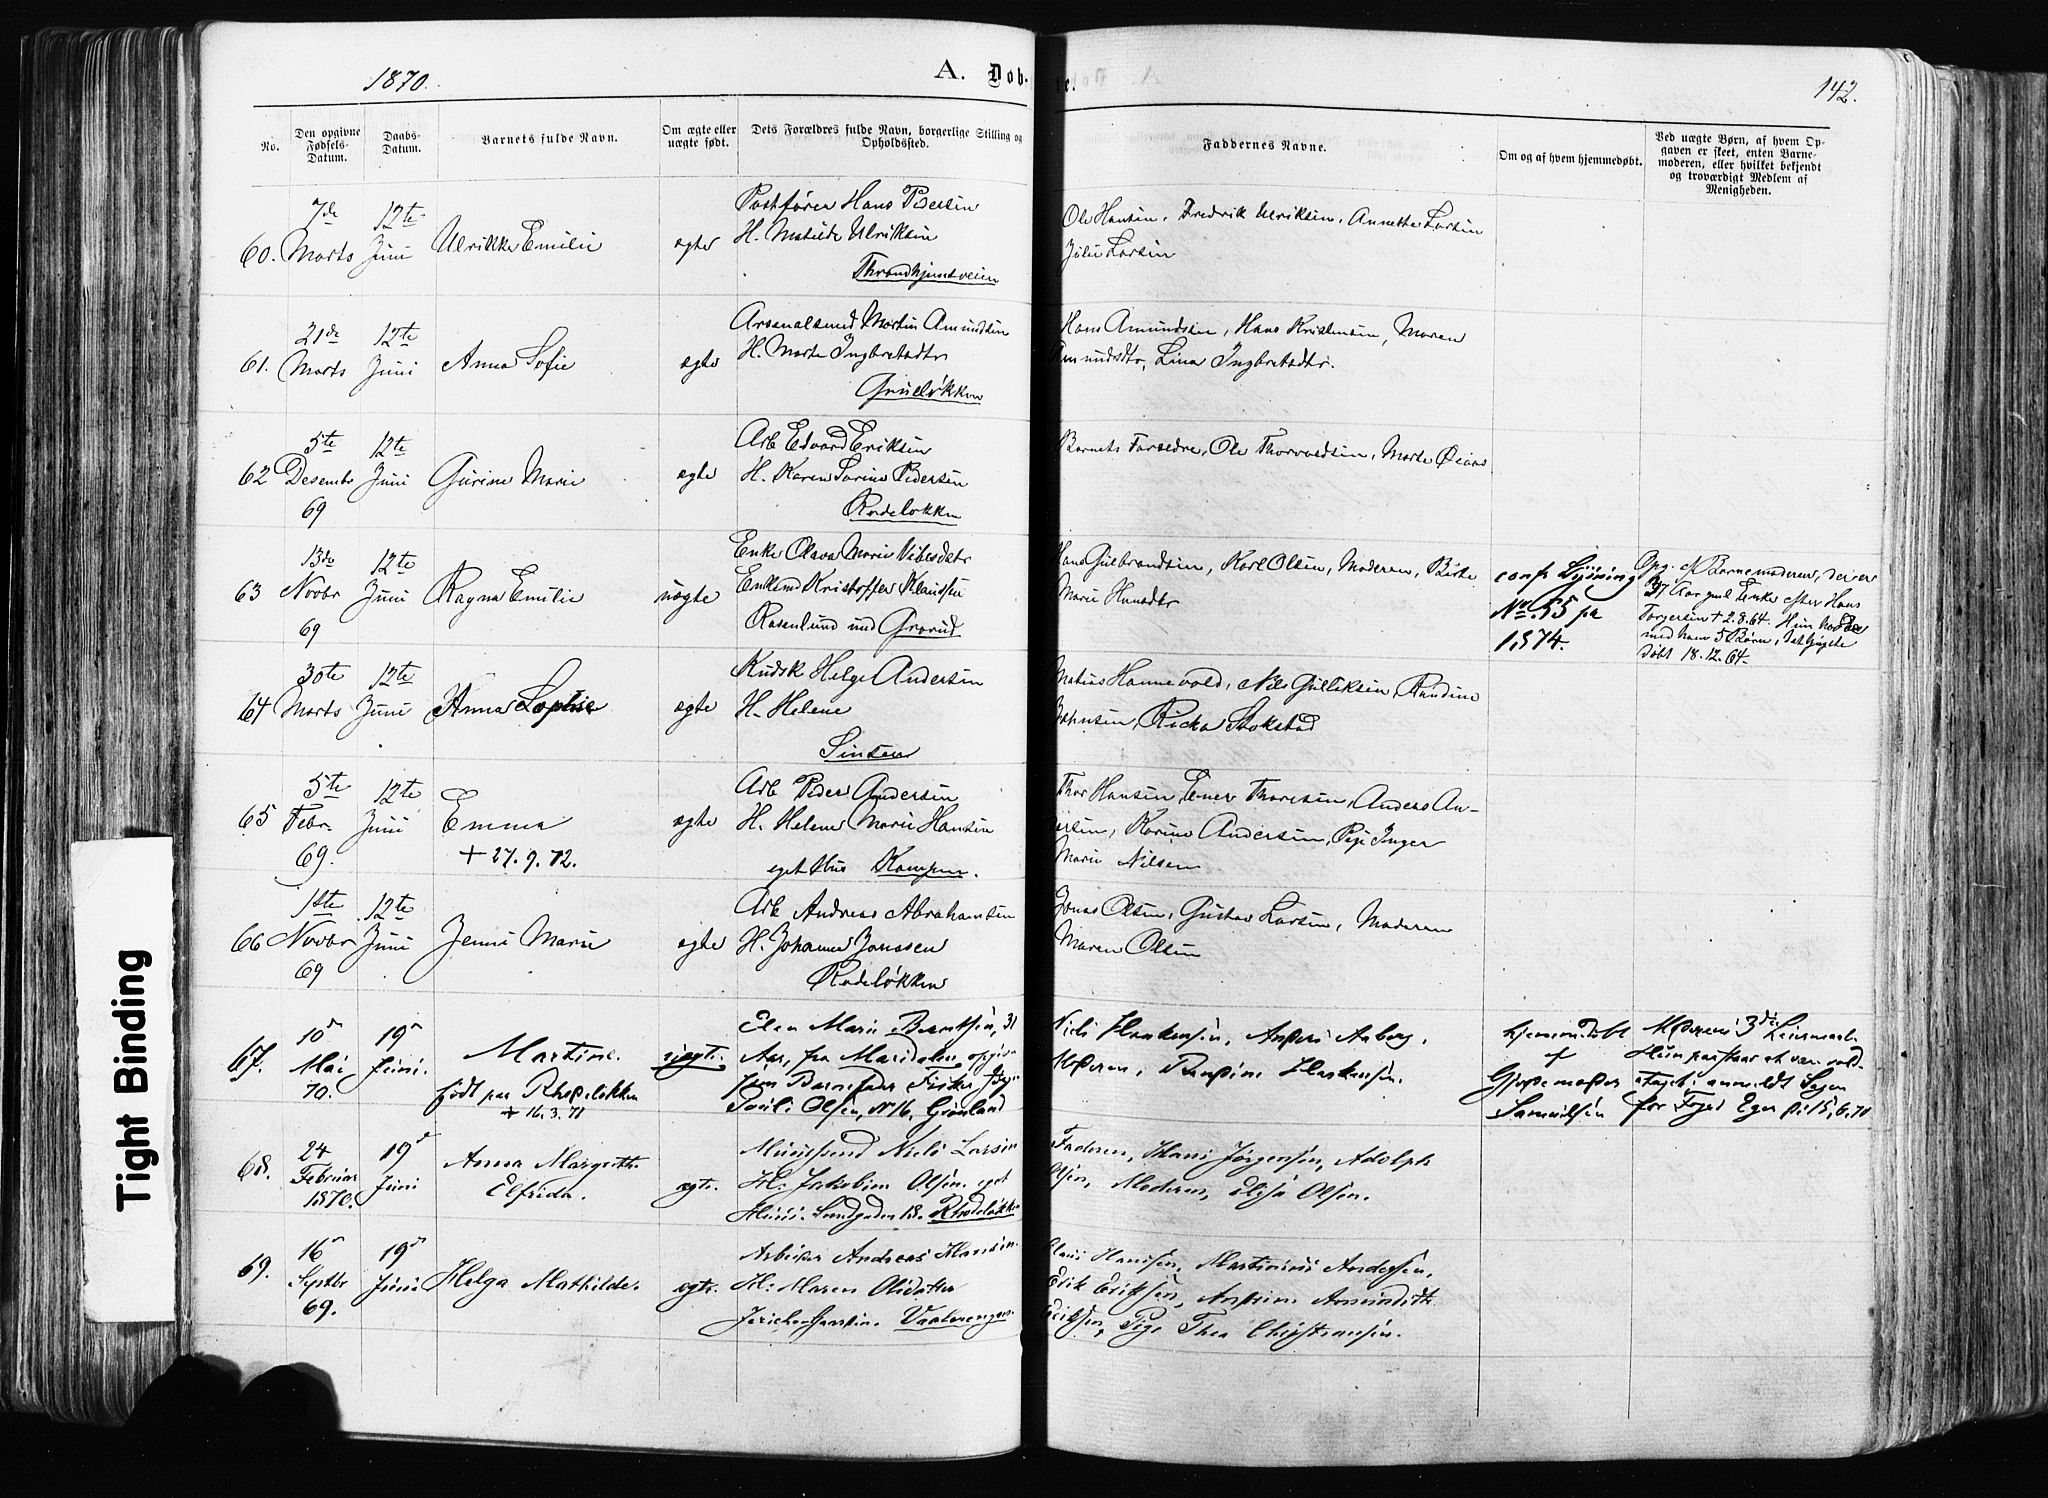 1870.
A. Døb-
te.
142.
No.
Den opgivne Fødsels-Datum.
Daabs-Datum.
Barnets fulde Navn.
Om ægte eller uægte født.
Dets Forældres fulde Navn, borgerlige Stilling og Opholdssted.
Faddernes Navne.
Om og af hvem hjemmedøbt.
Ved uægte Børn, af hvem Op-
gaven er skeet, enten Barne-
moderen, eller hvilket bekjendt
og troværdigt Medlem af
Menigheden.
60. 7de Marts 12te Juni Ulrikke Emilie ægte
Postfører Hans Pedersen
H. Matilde Ulriksen
Throndhjemsveien
Ole Hansen, Fredrik Ulriksen, Annette Larsen
Julie Larsen
61. 21de Marts 12te Juni Anna Sofie ægte
Arsenalsmed Martin Amundsen
H. Marte Ingbretsdtr
Grüneløkken
Hans Amundsen, Hans Kristensen, Maren
Amundsdtr, Lina Ingbretsdtr.
62 5te Desembr 69 12te Juni Gurine Marie ægte
Arb Edvard Eriksen
H. Karen Sorine Pedersen
Rodeløkken
Barnets Forældre, Ole Thorvaldsen, Marte
63 13de Novbr 69 12te Juni Ragna Emilie uægte
Enke Olava Marie
Enkemd Kristoffer Klaussen
Rosenlund und Grorud
Hans Gulbrandsen, Karl Olsen, Moderen, Birte
Marie Hansdtr
conf. Lysning
No. 55 pa
1874.
Opg. af Barnemoderen, der er
37 Aar gml Enke efter Hans
Torgersen + 2.8.64. Hun havde
med ham 5 Børn, det yngste
døbt 18.12.64.
64 30te Marts 12te Juni Anna Sophie ægte
Kudsk Helge Andersen
H. Helene
Sinsen
Matias Hannevold, Nils Gulliksen, Randine
Johnsen, Ricka Stokstad
65 5te Febr. 69. 12te Juni Emma ægte
+ 27.9.72.
Arb Peder Andersen
H. Helene Marie Hansen
eget Hus Kampen.
Thor Hansen, Thoresen, Anders An-
dersen, Karine Andersen, Pige Inger
Marie Nilsen
66 1ste Novbr 69 12te Juni Jenni Marie ægte
Arb Andreas Abrahamsen
H. Johanne Janssen
Rodeløkken
Jonas Olsen, Gustav Larsen, Moderen
Maren Olsen
67. 10d Mai 70. 19d Juni. Martine. uægte.
født paa Rhodeløkken
+ 16.3.71
Elen Marie Berntsen, 31
Aar, fra Maridalen, opgiver
som Barnefader Fisker
Olsen, N 16, Grønland
Niels Haakensen, Anders Aaberg,
Moderen, Haakensen.
hjemmedøbt
af
Gjordemoder
Samuelsen
Moderens 3die Leiermaal.
Hun paastaar at være vold-
taget; anmeldt Sagen
for Foged Eger pr 15.6.70
68. 24 Februar 1870. 19d Juni Anna Margrethe
Elfrida. ægte.
Muursvend Niels Larsen
H. Jakobine Olsen. eget
Huus. Sandgaden 18. Rhodeløkken
Faderen, Hans Jørgensen, Adolph
Olsen, Moderen, Elise Olsen.
69. 16d Septbr 69. 19d Juni Helga Mathilde. ægte.
Arbeider Andreas Hansen
H. Maren Olsdatter
Vaalerengen
Hansen, Martinius Andersen,
Erik Eriksen,
Eriksen, Pige Thea Christiansen.
Tight Binding